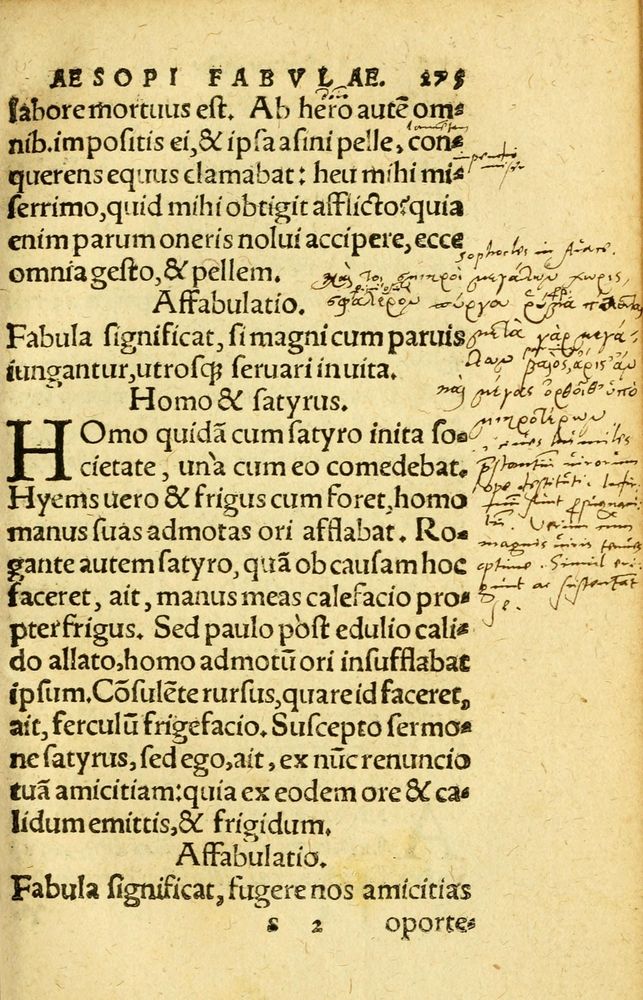 AESOPI FABVLAE. 275
labore mortuus est. Ab hero autē om-
nib. impositis ei, & ipsa asini pelle, con-
querens equus clamabat: heu mihi mi-
serrimo, quid mihi obtigit afflicto? quia
enim parum oneris nolui accipere, ecce
omnia gesto, & pellem.
Affabulatio.
Fabula significat, si magni cum paruis
iungantur, utrosq; seruari in uita.
Homo & satyrus.
HOmo quidā cum satyro inita so-
cietate, unà cum eo comedebat.
Hyems uero & frigus cum foret, homo
manus suas admotas ori afflabat. Ro-
gante autem satyro, quā ob causam hoc
faceret, ait, manus meas calefacio pro-
pter frigus. Sed paulo pòst edulio cali-
do allato, homo admotū ori insufflabat
ipsum. Cōsulēte rursus, quare id faceret,
ait, ferculū frigefacio. Suscepto sermo-
ne satyrus, sed ego, ait, ex nūc renuncio
tuā amicitiam: quia ex eodem ore & ca-
lidum emittis, & frigidum.
Affabulatio.
Fabula significat, fugere nos amicitias
s 2 oporte-
Sophocles in
σμικροὶ μεγάλων χωρὶς,
σφαλερὸν πύργου ῥῦμα
μετὰ γὰρ μεγά-
λων βαιὸς ἄριστ' ἂν
καὶ μέγας ὀρθοῖθ' ὑπὸ
μικροτέρων